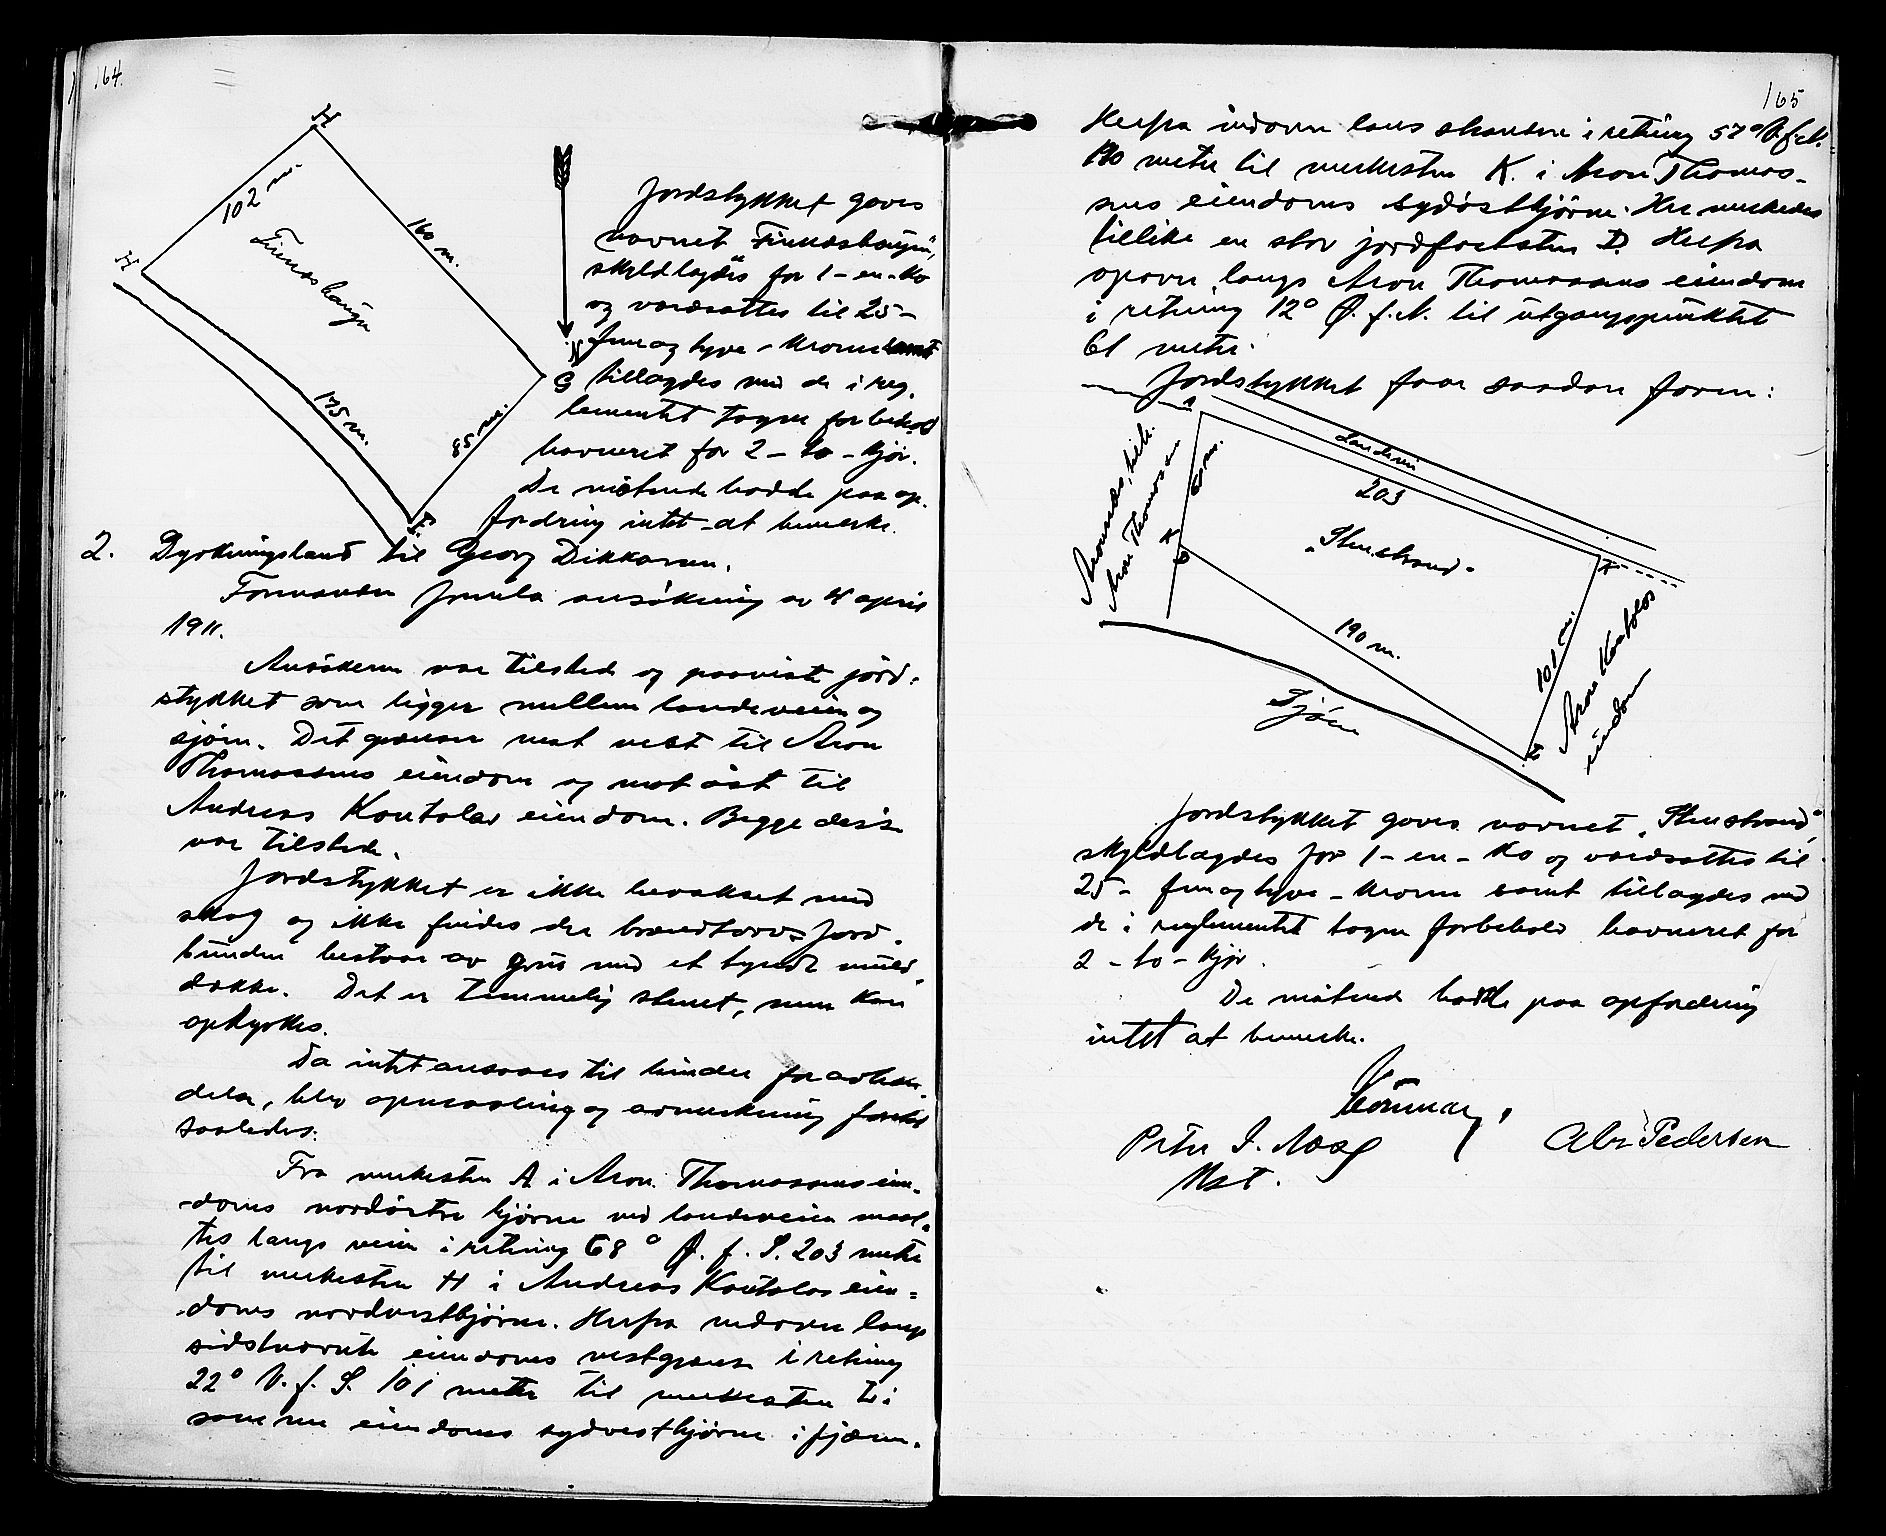 164.
H
102 m.
H
Finneshaugen
160 m.
175 m.
85 m.
G
N
F.
Jordstykket gaves
navnet „Finneshaugen",
skyldlagdes for 1 - en - ko
og værdsattes til 25 -
fem og tyve - kroner samt
tillagdes med de i reg-
lementet tagne forbehold
havneret for 2 - to - kjør.
De møtende hadde paa op-
fordring intet at bemerke.
2. Dyrkningsland til Georg Dikkanen.
Formanden fremla ansøkning av 4 april
1911.
Ansøkeren var tilstede og paaviste jord-
stykket som ligger mellem landeveien og
sjøen. Det grænser mot vest til Aron
Thomassens eiendom og mot øst til
Andreas Kontolas eiendom. Begge disse
var tilstede.
Jordstykket er ikke bevokset med
skog og ikke findes der brændtorv. Jord-
bunden bestaar av grus med et tyndt muld-
dække. Det er temmelig stenet, men kan
opdyrkes.
Da intet ansaaes til hinder for avhæn-
delse, blev opmaaling og avmerkning foretat
saaledes:
Fra merkesten A i Aron Thomassens eien-
doms nordøstre hjørne ved landeveien maal-
tes langs veien i retning 68° Ø. f. S. 203 meter
til merkesten H i Andreas Kontolas eien-
doms nordvesthjørne. Herfra nedover langs
sidstnævnte eiendoms vestgrense i retning
22° V. f. S. 101 meter til merkesten E i
samme eiendoms sydvesthjørne i fjæren.
165
Herfra indover langs stranden i retning 57° V. f. N.
190 meter til merkesten K. i Aron Thomas-
sens eiendoms sydøsthjørne. Her merkedes
tillike en stor jordfast sten D. Herfra
opover langs Aron Thomassens eiendom
i retning 12° Ø. f. N. til utgangspunktet
61 meter.
Jordstykket faar saadan form:
A
Landevei
203
Aron Thomassen
61 m.
K
D
„Stenstrand"
H
190 m.
101 m.
E
Kontolas
eiendom
Sjøen
Jordstykket gaves navnet „Stenstrand",
skyldlagdes for 1 - en - ko og værdsattes til
25 - fem og tyve - kroner samt tillagdes med
de i reglementet tagne forbehold havneret for
2 - to - kjør.
De møtende hadde paa opfordring
intet at bemerke.
Peter I. Næss
Abr. Pedersen